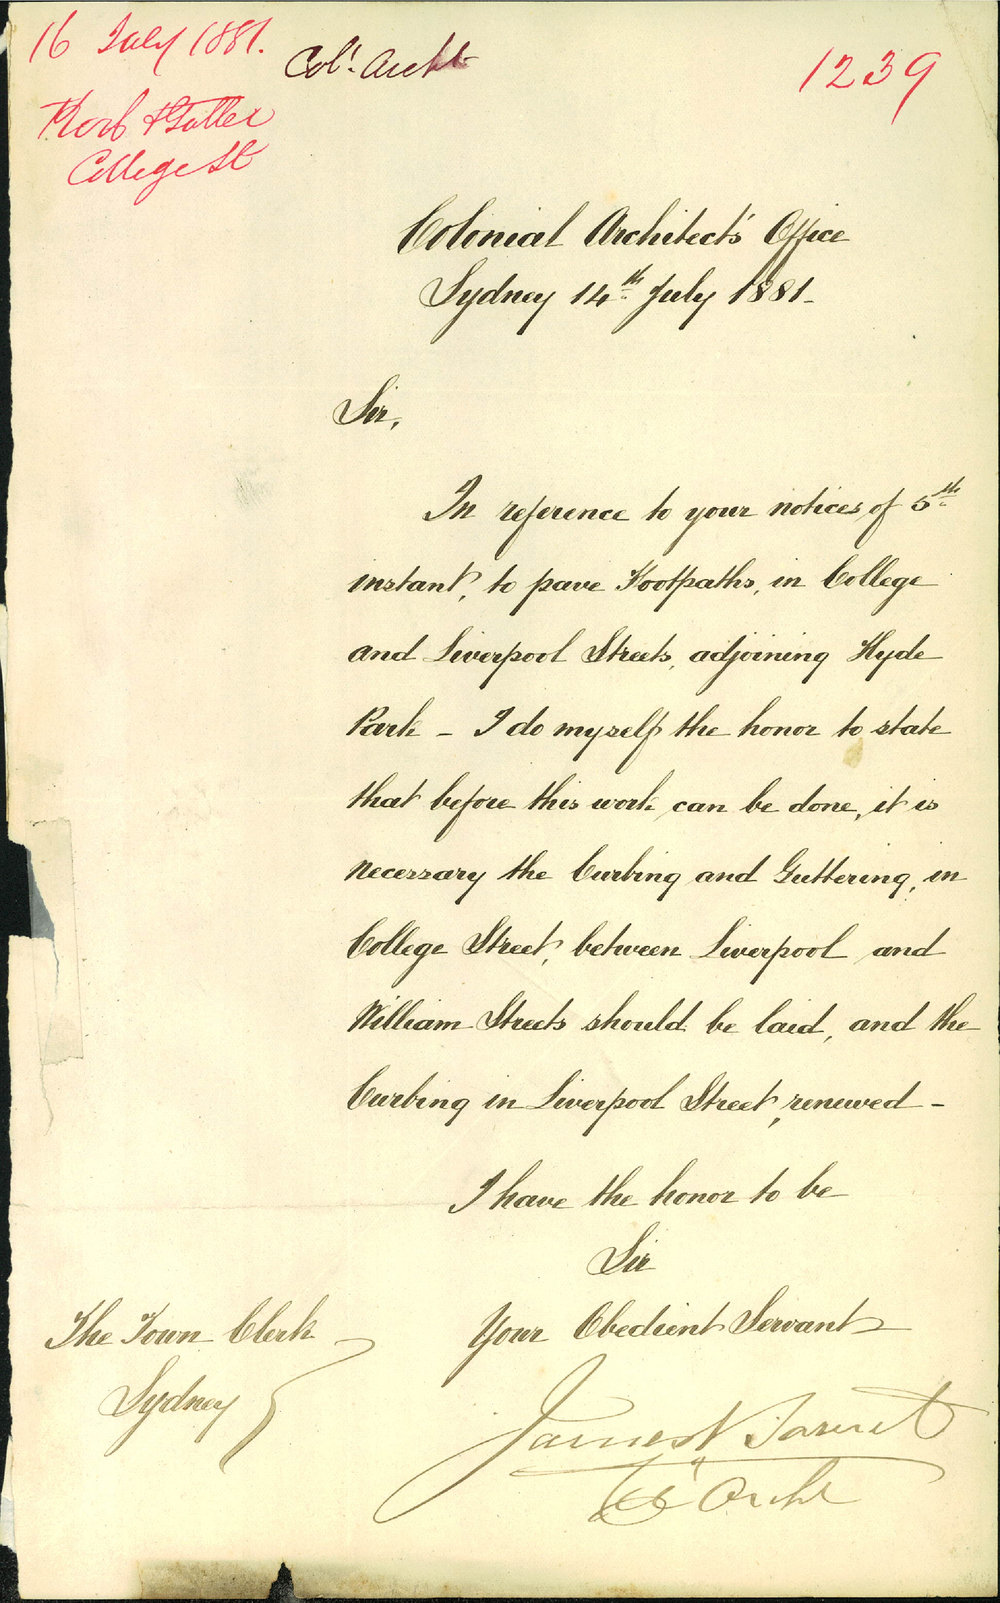 16 July 1881.
Col<sup>l</sup>. Archt
1239
Kerb & Gutter
College St
Colonial Architect's Office
Sydney 14th July 1881-
Sir,
In reference to your notices of 5th
instant, to pave Footpaths, in College
and Liverpool Streets, adjoining Hyde
Park - I do myself the honor to state
that before this work can be done, it is
necessary the Curbing and Guttering, in
College Street, between Liverpool and
William Streets should be laid, and the
Curbing in Liverpool Street, renewed -
I have the honor to be
Sir
Your Obedient Servant
The Town Clerk
Sydney
James Barnet
Col Archt